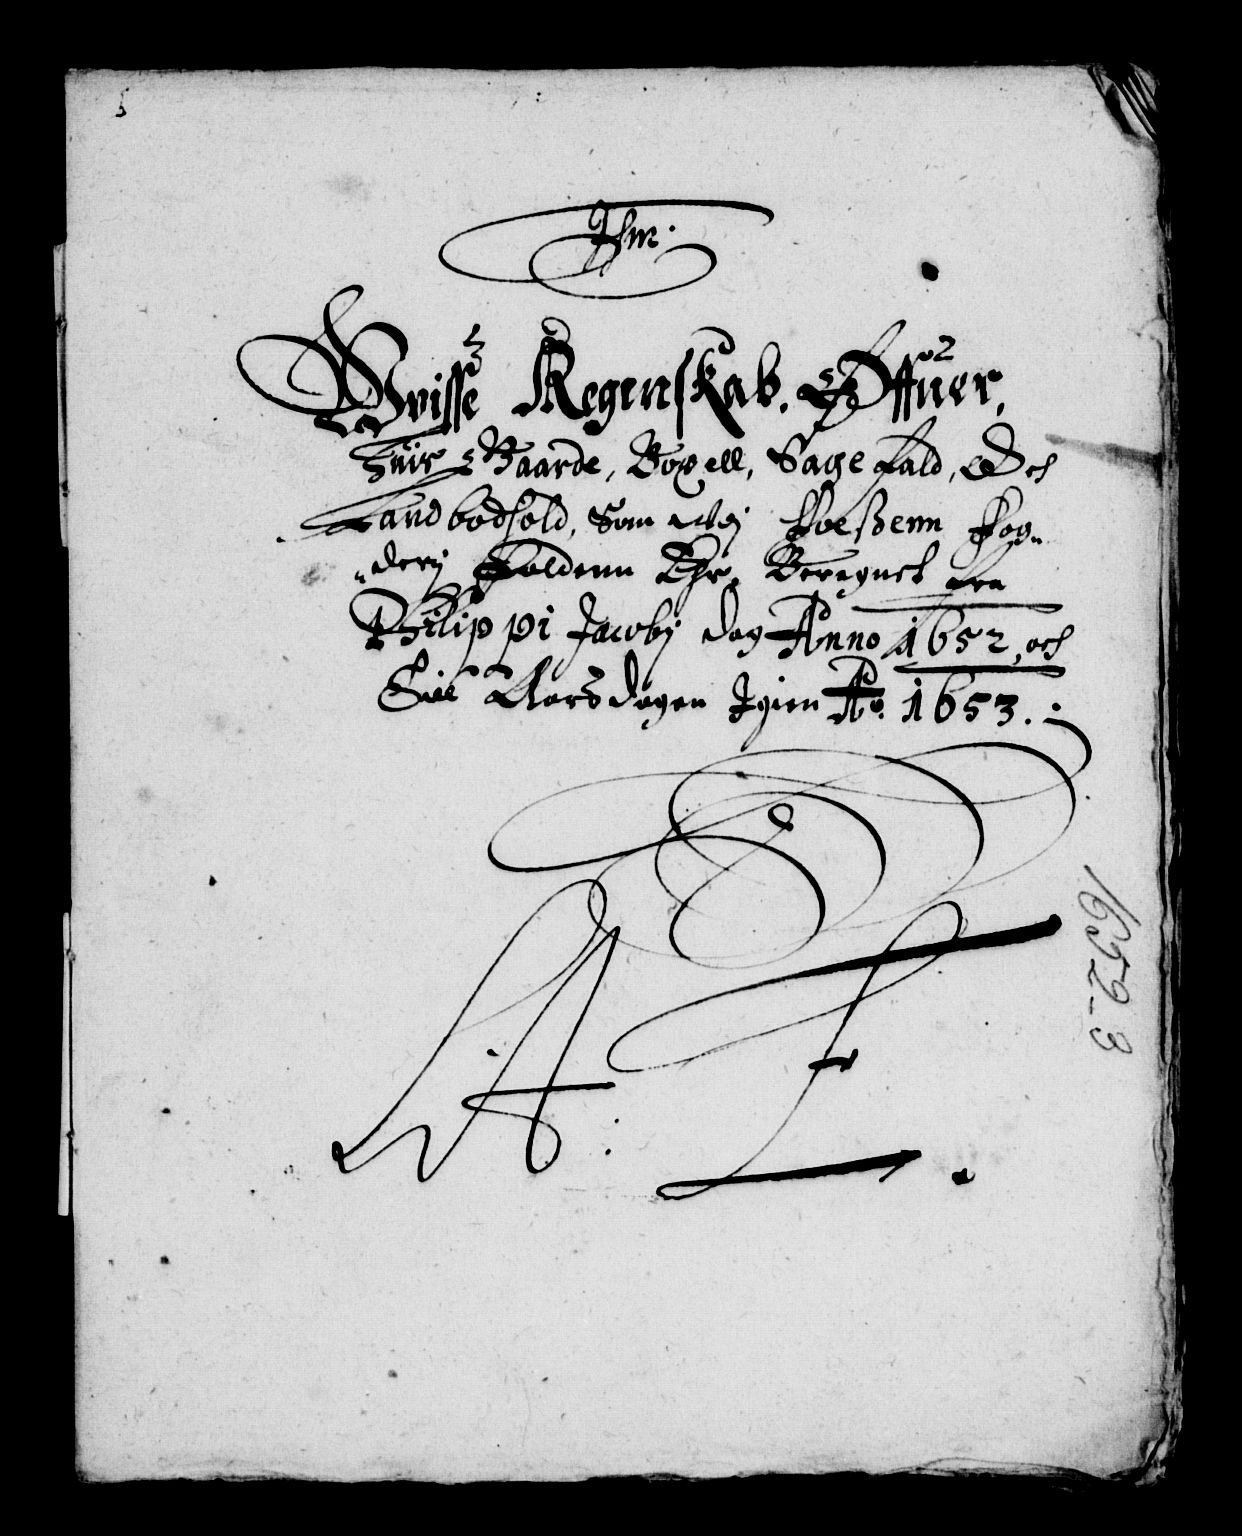 Jhm.
Uvisse Regenskab. Offuer,
Huis Baarde, Boxell, Sagefald, Och
Landbodhold, Som udj Foeßenn Fog-
derj Falden Ehr, Beregnet fra
Philippi Jacobj dag Anno 1652, och
Till Aarsdagen Igien Ao. 1653.
A: F.
1652-3